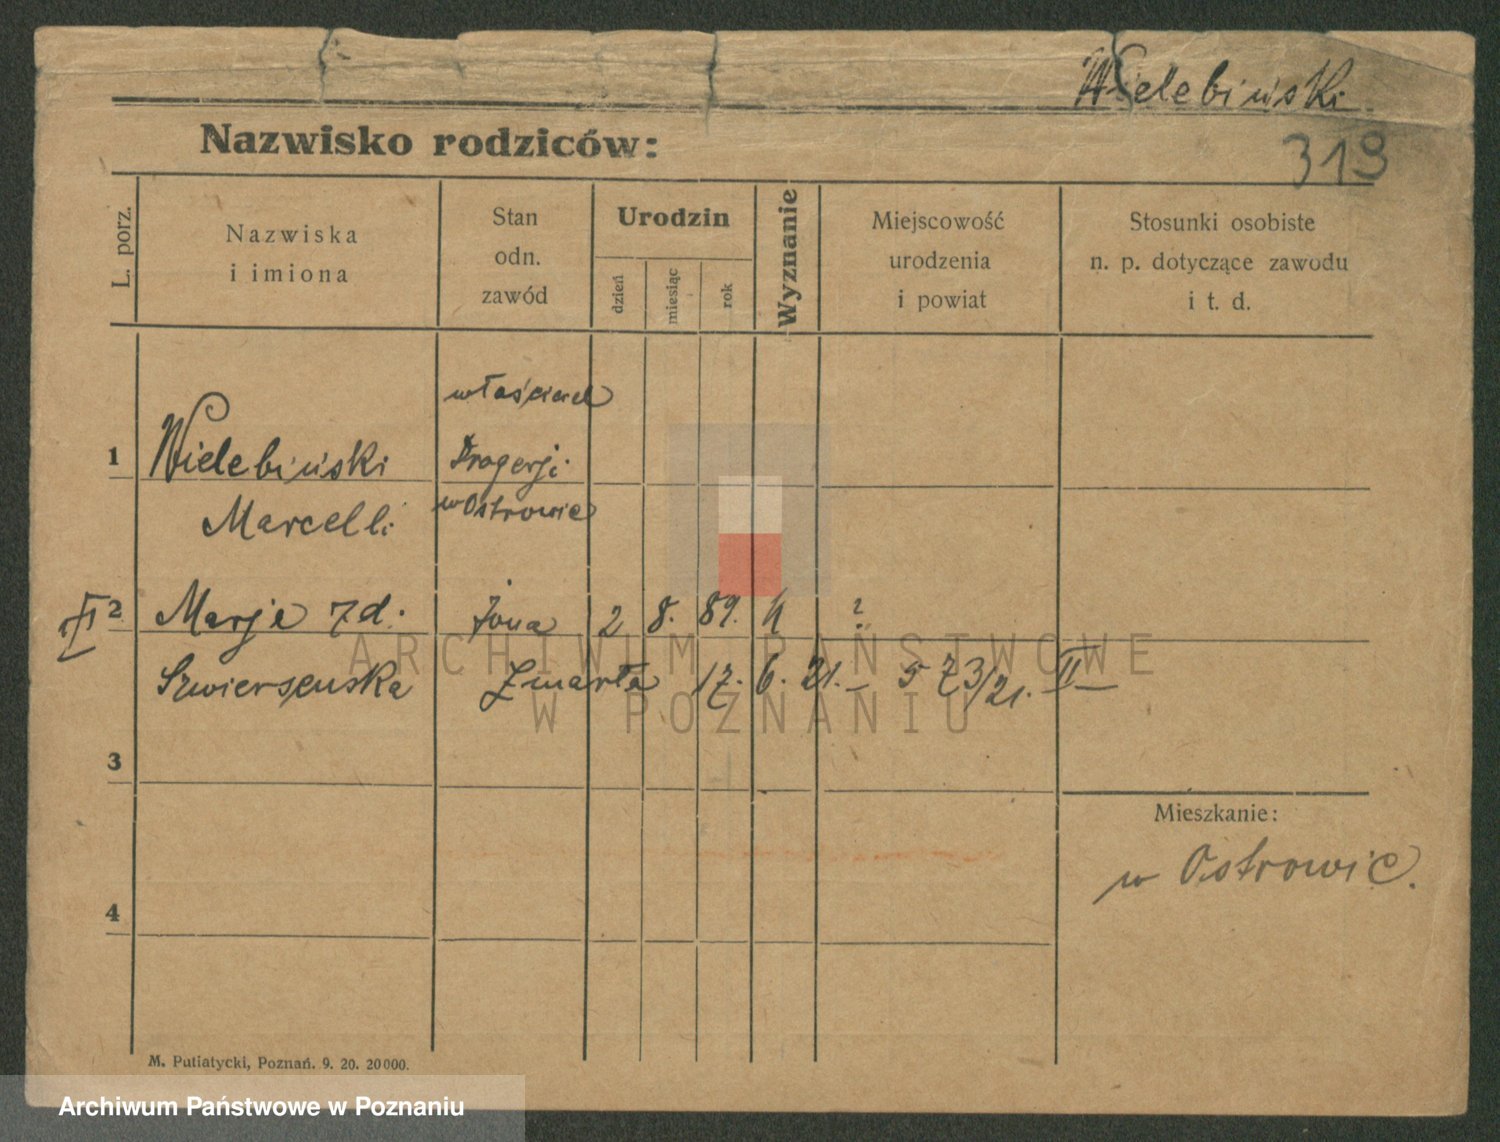 Wielebiński
319
Nazwisko rodziców:
L. porz.
Nazwiska
i imiona
Stan
odn.
zawód
Urodzin
dzień
miesiąc
rok
Wyznanie
Miejscowość
urodzenia
i powiat
Stosunki osobiste
n. p. dotyczące zawodu
i t. d.
właściciel
1 Wielebiński Drogerji
Marcelli w Ostrowie
II 2 Marja żona 2 8. 89. k ?
ARCHIWUM PAŃSTWOWE
Szwiersenska Zmarła 17. 6. 21. – 573/21. II –
W POZNANIU
3
Mieszkanie:
w Ostrowie.
4
M. Putiatycki, Poznań. 9. 20. 20000.
Archiwum Państwowe w Poznaniu